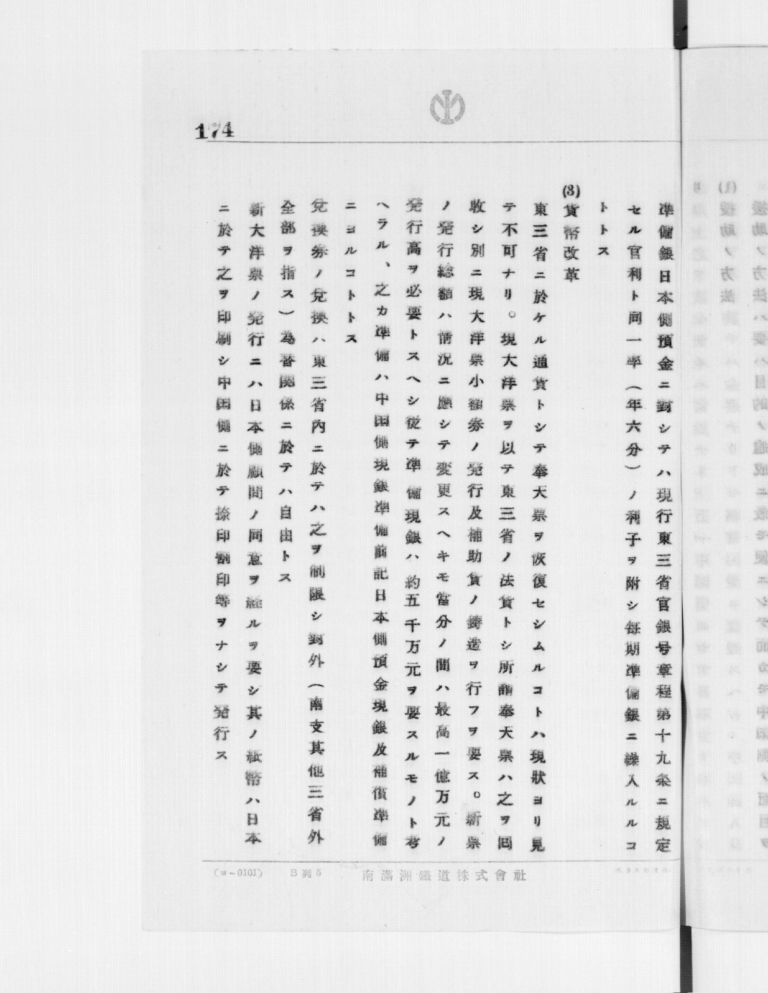 174
準備銀日本側預金ニ對シテハ現行東三省官銀号章程第十九条ニ規定
セル官利ト同一率（年六分）ノ利子ヲ附シ每期準備銀ニ繰入ルルコ
トトス
(3)貨幣改革
東三省ニ於ケル通貨トシテ奉天票ヲ恢復セシムルコトハ現狀ヨリ見
テ不可ナリ。現大洋票ヲ以テ東三省ノ法貨トシ所謂奉天票ハ之ヲ回
收シ別ニ現大洋票小額券ノ発行及補助貨ノ鑄造ヲ行フヲ要ス。新票
ノ発行総額ハ情況ニ應シテ変更スヘキモ當分ノ間ハ最高一億万元ノ
発行高ヲ必要トスヘシ從テ準備現銀ハ約五千万元ヲ要スルモノト考
ヘラル、之カ準備ハ中国側現銀準備前記日本側預金現銀及補償準備
ニヨルコトトス
兌換券ノ兌換ハ東三省内ニ於テハ之ヲ制限シ對外（南支其他三省外
全部ヲ指ス）為替関係ニ於テハ自由トス
新大洋票ノ発行ニハ日本側顧問ノ同意ヲ経ルヲ要シ其ノ紙幣ハ日本
ニ於テ之ヲ印刷シ中国側ニ於テ捺印割印等ヲナシテ発行ス
(ヨ-0101) B列5 南滿洲鐵道株式會社